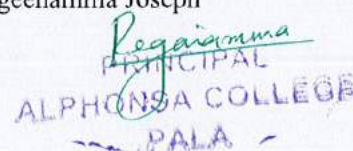 geenamma Joseph
Regaiamma
PRINCIPAL
ALPHONSA COLLEGE
PALA